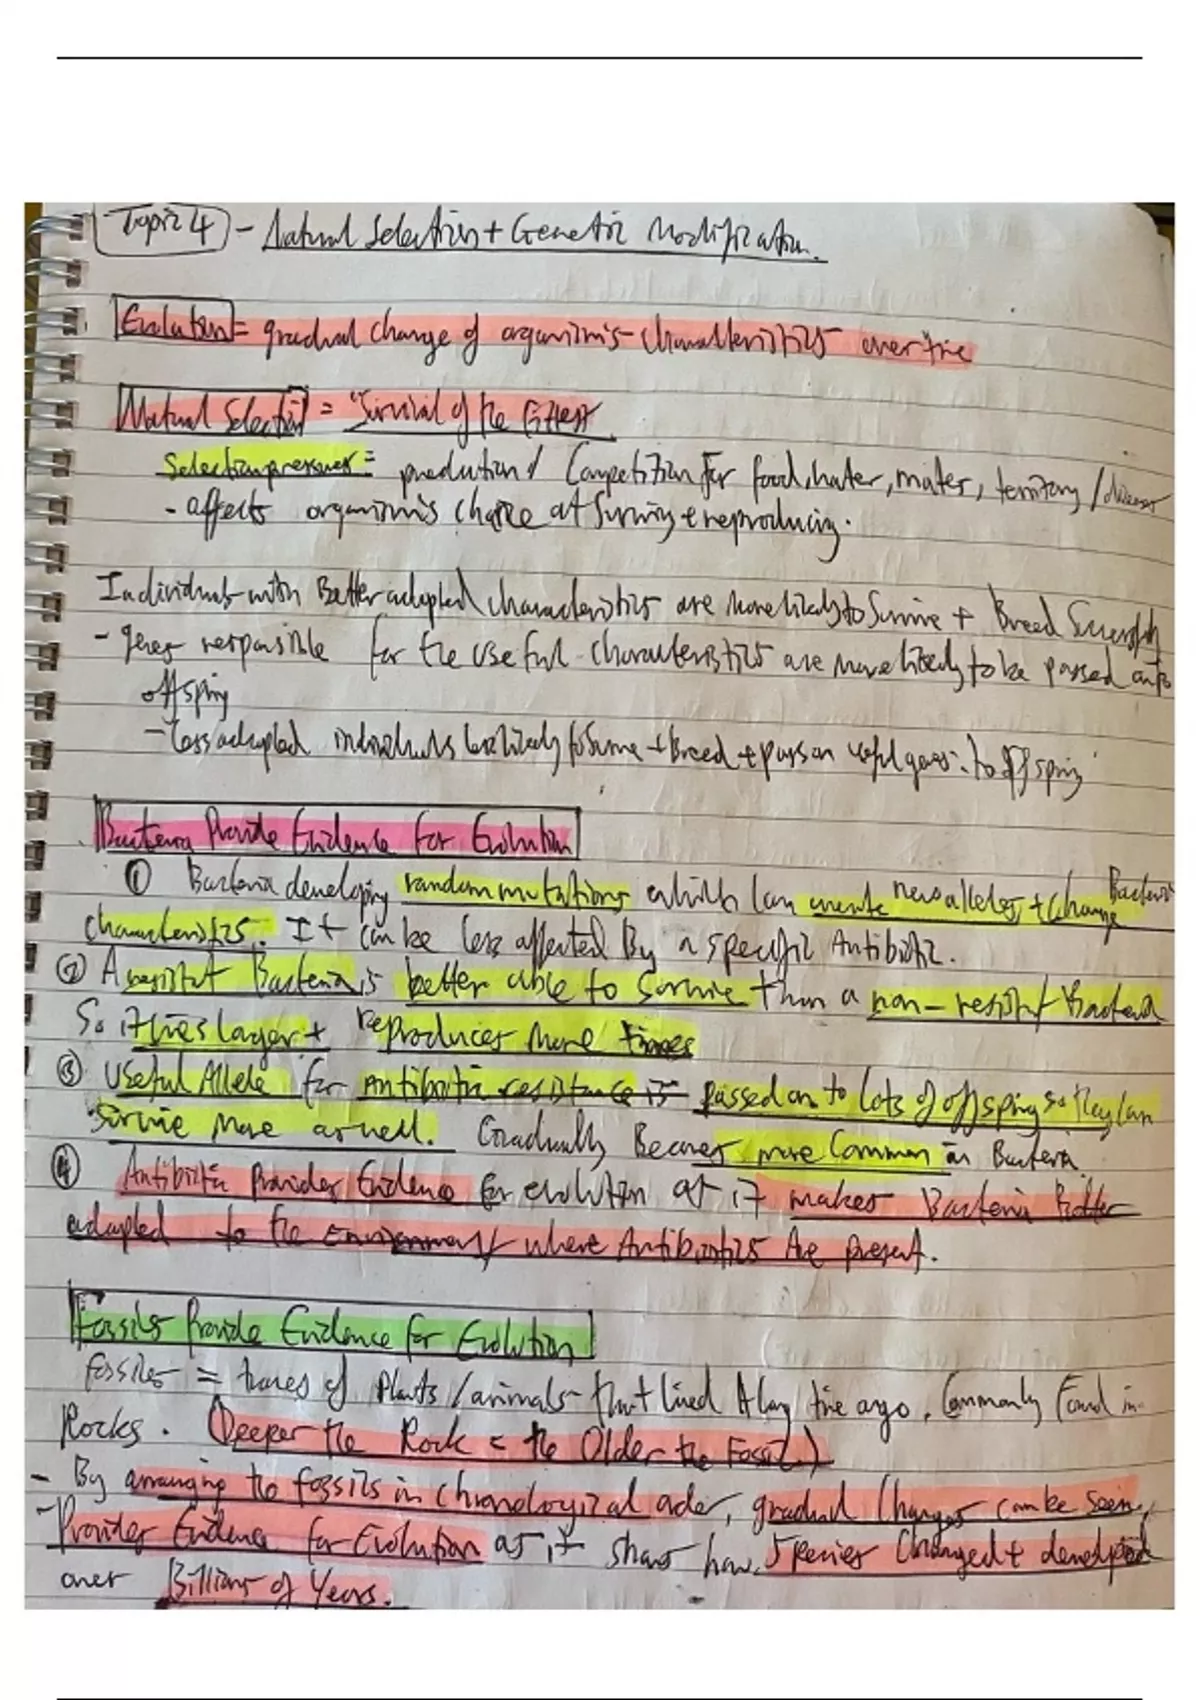 Topic 4 - Natural Selection + Genetic Modification.
Evolution = gradual change of organism's characteristics over time
Natural Selection = "Survival of the fittest
Selection pressures = predation / Competition for food, water, mates, territory / disease
- affects organism's chance at surviving + reproducing.
Individuals with Better adapted characteristics are more likely to Survive + Breed Successfully
- genes responsible for the useful characteristics are more likely to be passed onto
offspring
- less adapted individuals less likely to survive + Breed + pass on useful genes to offspring
Bacteria Provide Evidence for Evolution
① Bacteria developing random mutations which can create new alleles + change Bacteria
characteristics. It can be less affected By a specific Antibiotic.
② A resistant Bacteria is better able to survive than a non-resistant Bacteria
So it lives longer + reproduces more times
③ Useful Allele for Antibiotic resistance is passed on to lots of offspring so they can
survive more as well. Gradually Becomes more Common in Bacteria.
④ Antibiotic Provides Evidence for evolution as it makes Bacteria Better
adapted to the Environment where Antibiotics Are present.
Fossils Provide Evidence for Evolution
Fossils = traces of Plants / animals that lived A long time ago. Commonly Found in
Rocks. (Deeper the Rock = the Older the Fossil)
- By arranging the fossils in chronological order, gradual Changes can be seen,
- Provides Evidence for Evolution as it shows how Species Changed + developed
over Billions of Years.